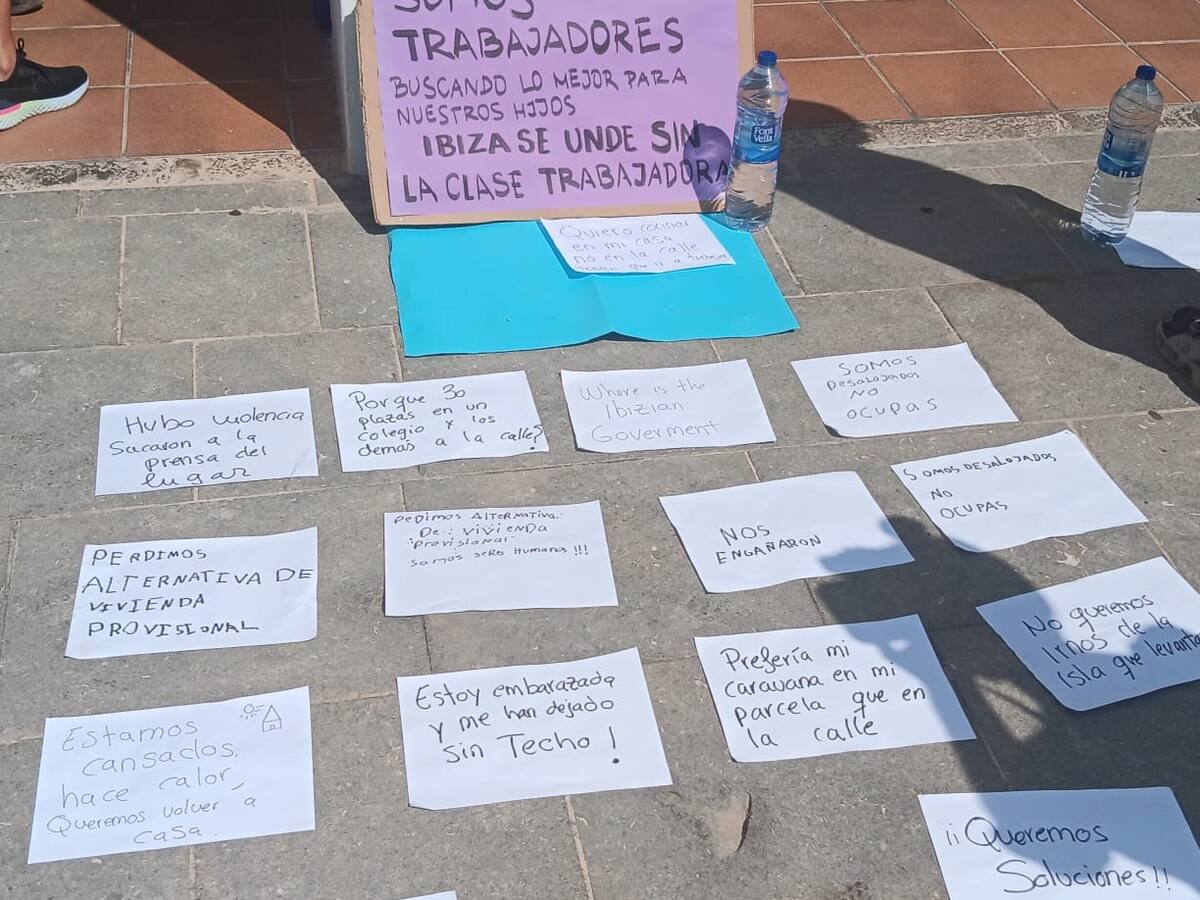 SOMOS
TRABAJADORES
BUSCANDO LO MEJOR PARA
NUESTROS HIJOS
IBIZA SE UNDE SIN
LA CLASE TRABAJADORA
Font
Vella
Quiero cocinar
en mi casa
no en la calle
que ir a trabajar
Hubo violencia
Sacaron a la
prensa del
lugar
Porque 30
plazas en un
colegio y los
demás a la calle?
Where is the
Ibizian
Goverment
SOMOS
DESALOJADOS
NO
OCUPAS
SOMOS DESALOJADOS
NO
OCUPAS
PERDIMOS
ALTERNATIVA DE
VIVIENDA
PROVISIONAL
PEDIMOS ALTERNATIVA:
DE: VIVIENDA
"PROVISIONAL"
SOMOS SERO HUMANOS!!!
NOS
ENGAÑARON
No queremos
Irnos de la
Isla que
Estamos
cansados.
hace calor,
Queremos volver a
casa.
Estoy embarazada
y me han dejado
sin Techo!
Prefería mi
caravana en mi
parcela que en
la calle
¡¡Queremos
Soluciones!!